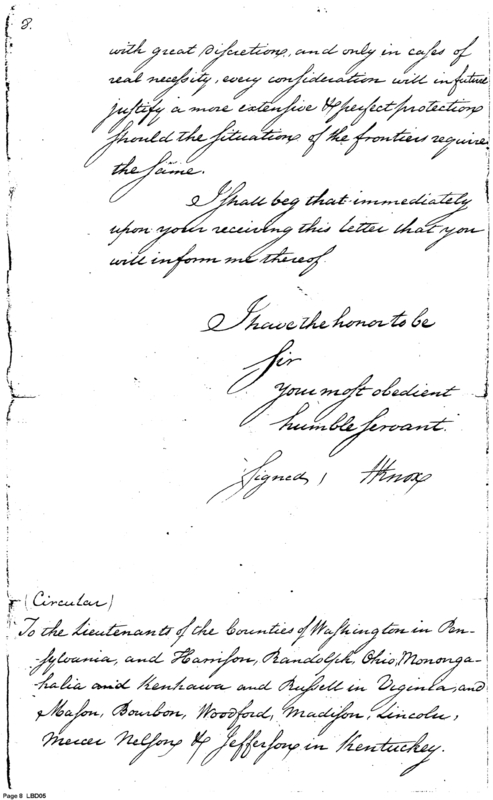 8.
with great discretion, and only in cases of
real necessity, every consideration will in future
justify a more extensive & perfect protection
should the situation of the frontiers require
the same.
I shall beg that immediately
upon your receiving this letter that you
will inform me thereof.
I have the honor to be
Sir
your most obedient
humble servant.
Signed, HKnox
(Circular)
To the Lieutenants of the Counties of Washington in Pen-
sylvania, and Harrison, Randolph, Ohio, Mononga-
halia and Kenhawa and Russell in Virginia, and
Mason, Bourbon, Woodford, Madison, Lincoln,
Mercer Nelson & Jefferson in Kentuckey.
Page 8 LBD05